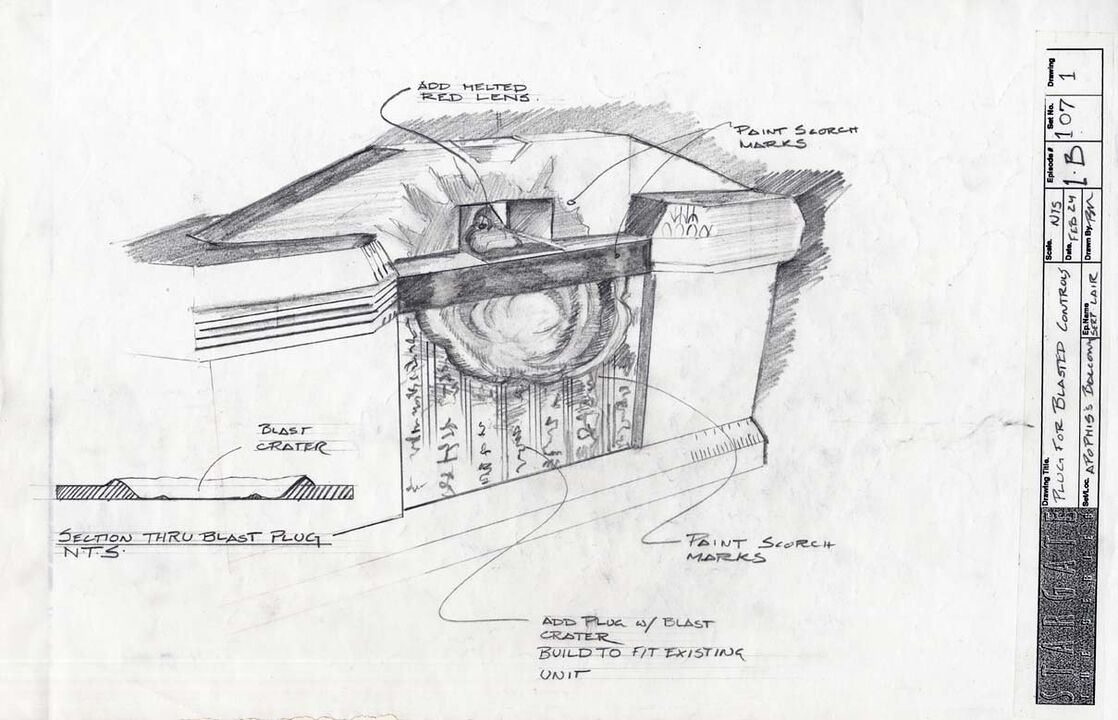 ADD MELTED
RED LENS.
PAINT SCORCH
MARKS
BLAST
CRATER
SECTION THRU BLAST PLUG
N.T.S.
PAINT SCORCH
MARKS
ADD PLUG W/ BLAST
CRATER
BUILD TO FIT EXISTING
UNIT
STARGATE
THE SERIES
Drawing Title.
PLUG FOR BLASTED CONTROLS
Set/Loc.
APOPHIS'S BALCONY
Ep. Name
SERP. LAIR
Scale. NTS
Date. FEB 24
Drawn By.
Episode #
1.B
Set No.
107
Drawing
1